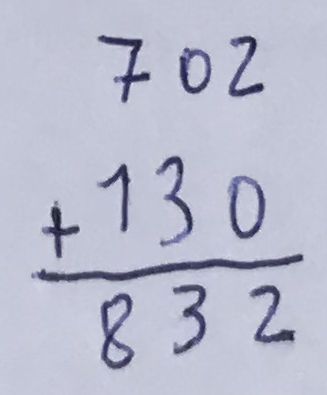 702
+130
832